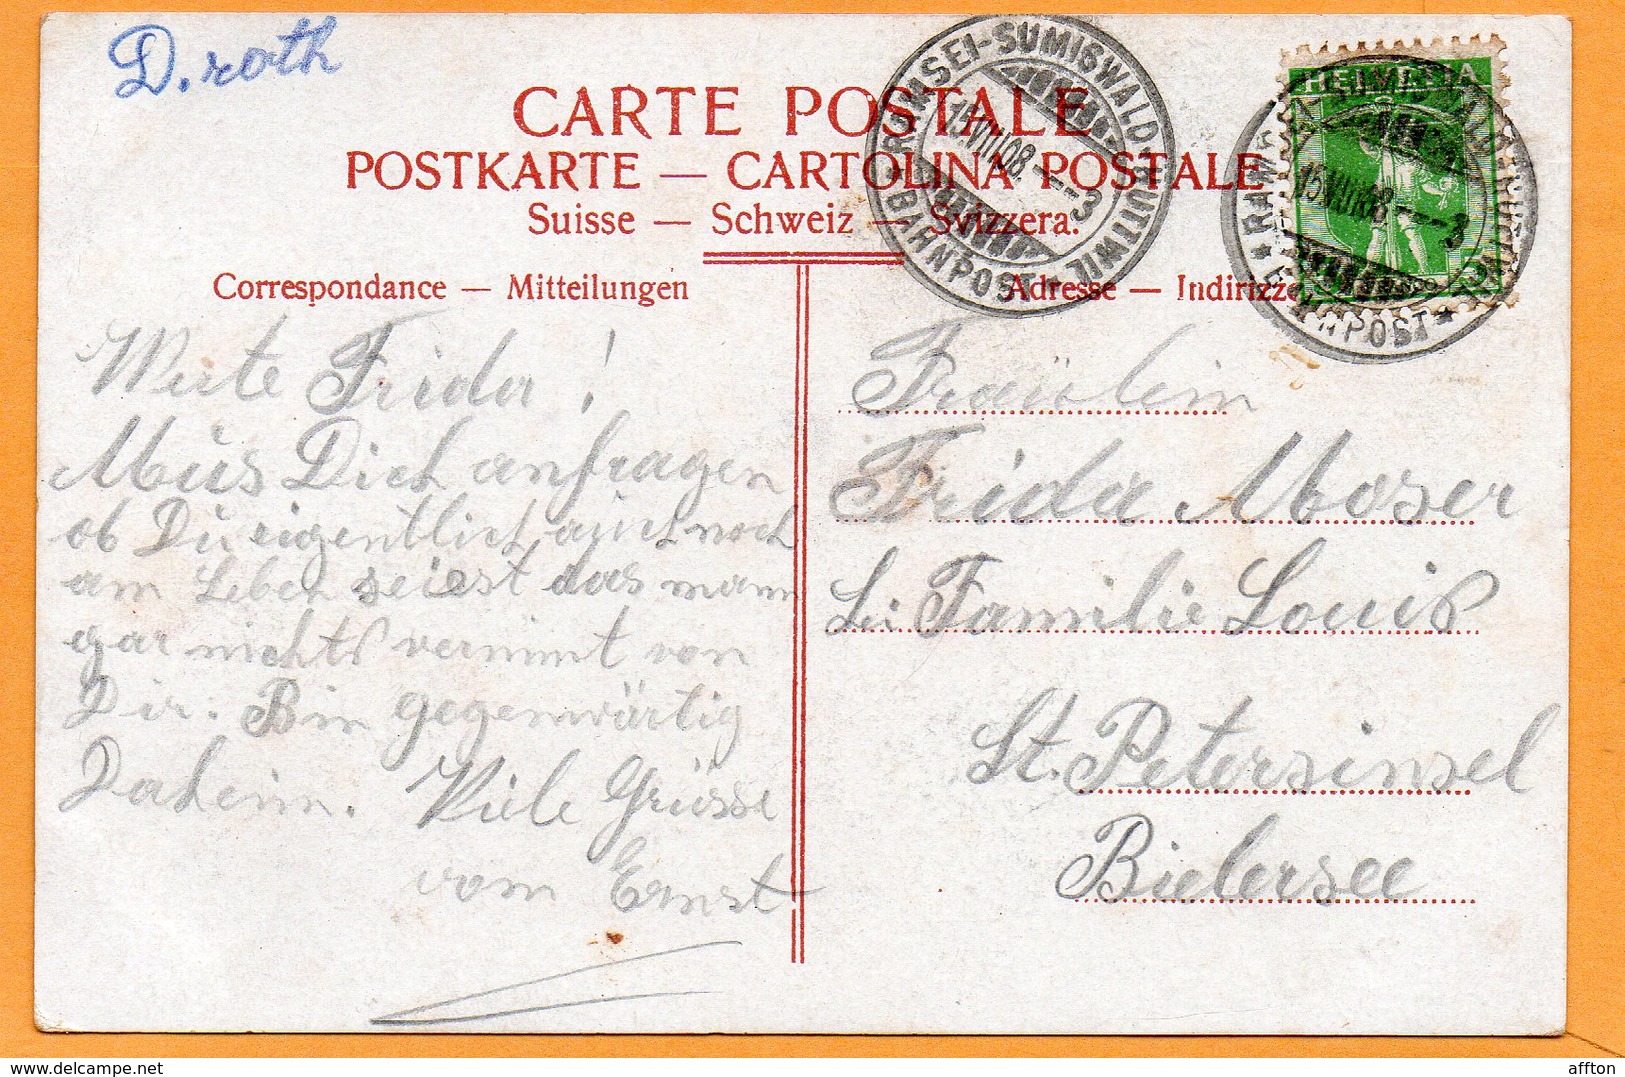 D. roth
CARTE POSTALE
POSTKARTE — CARTOLINA POSTALE
Suisse — Schweiz — Svizzera.
RAMSEI-SUMISWALD-HUTTWIL
15.VIII.08. — 3
BAHNPOST
HELVETIA
Correspondance — Mitteilungen
Adresse — Indirizzo
Werte Frida!
Mus Dich anfragen
ob Du eigentlich auch noch
am Leben seiest das man
gar nichts vernimt von
Dir. Bin gegenwärtig
Daheim. Viele Grüsse
vom Ernst
Fräulein
Frida Moser
bei Familie Louis
St. Petersinsel
Bielersee
affton